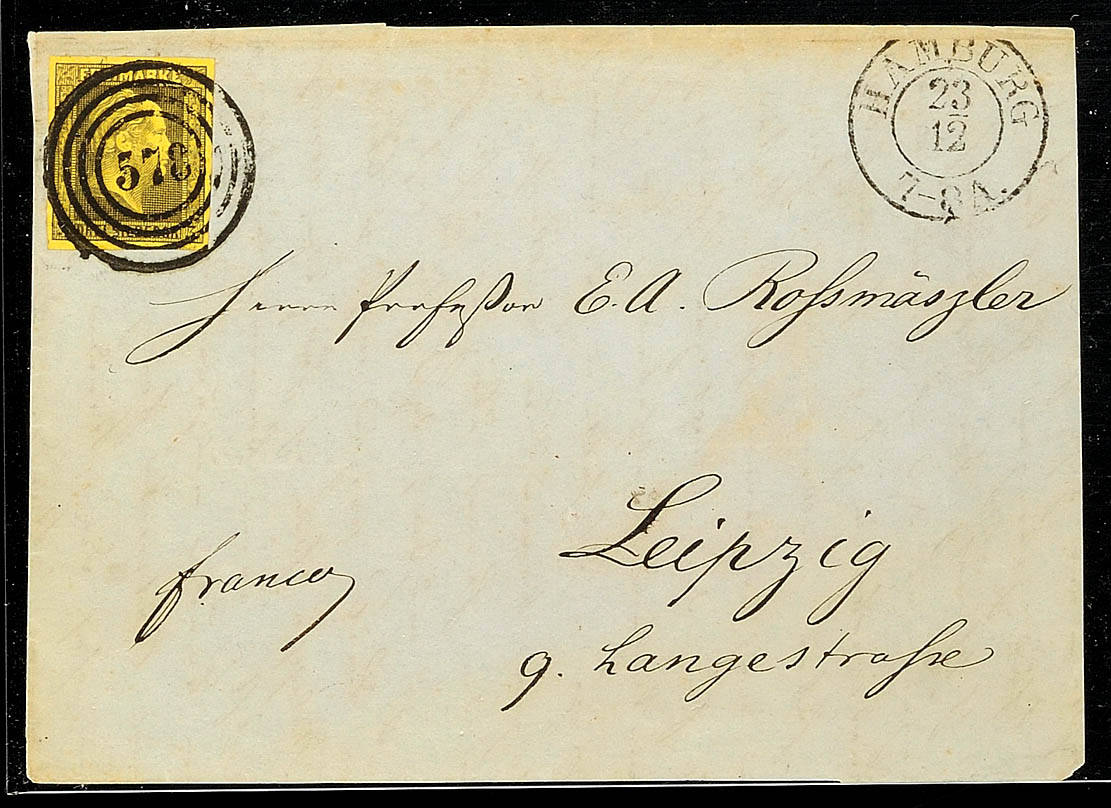 FREIMARKE
578
HAMBURG
23
12
7-8A.
Herrn Professor E. A. Rossmäszler
franco
Leipzig
9. Langestrasse